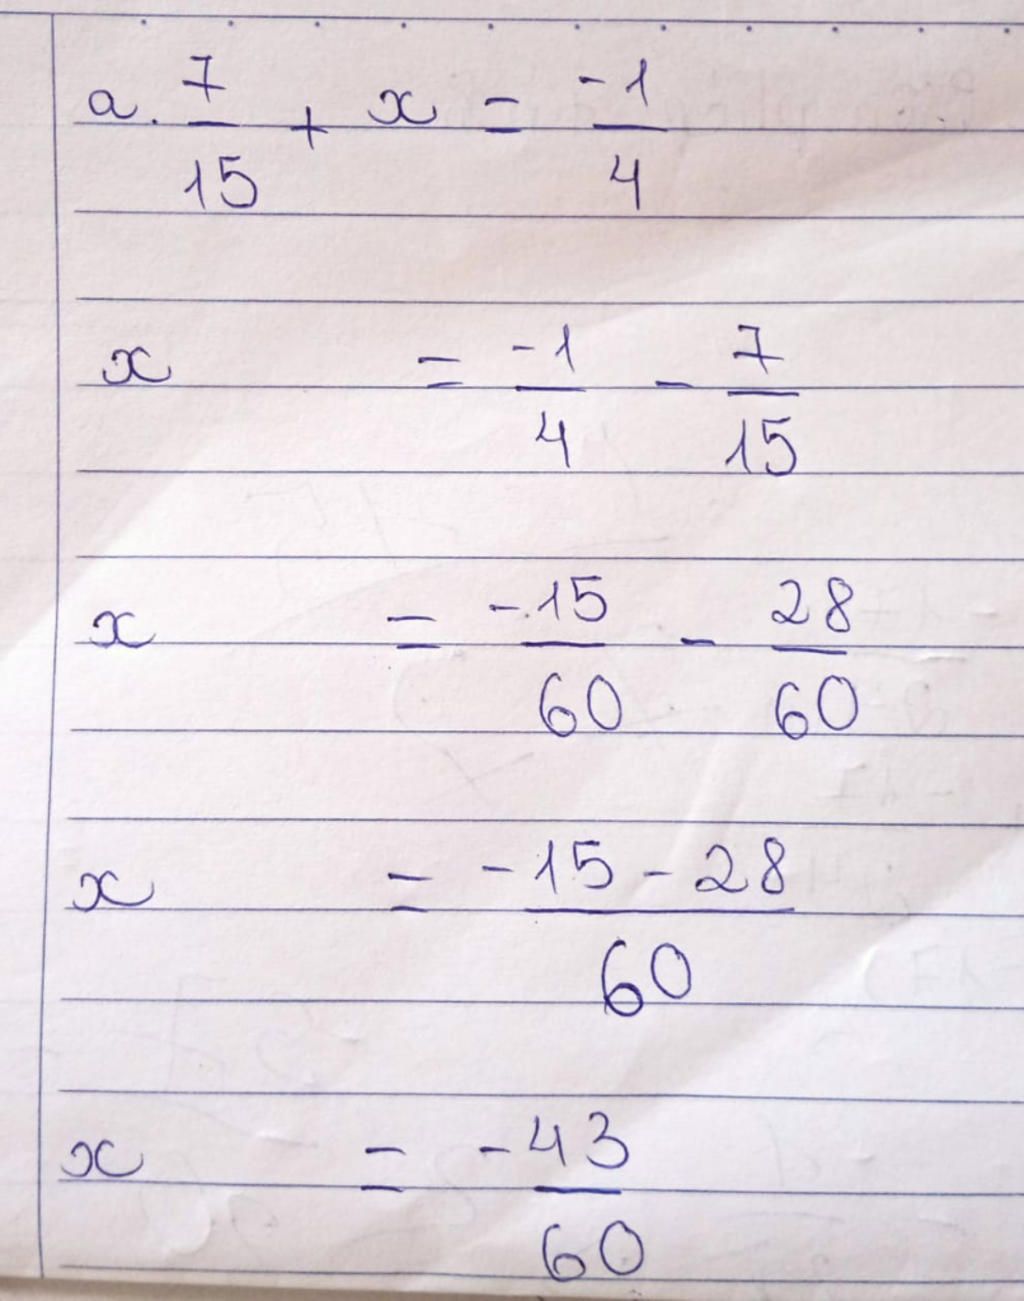 a. 7/15 + x = -1/4
x = -1/4 - 7/15
x = -15/60 - 28/60
x = -15-28/60
x = -43/60